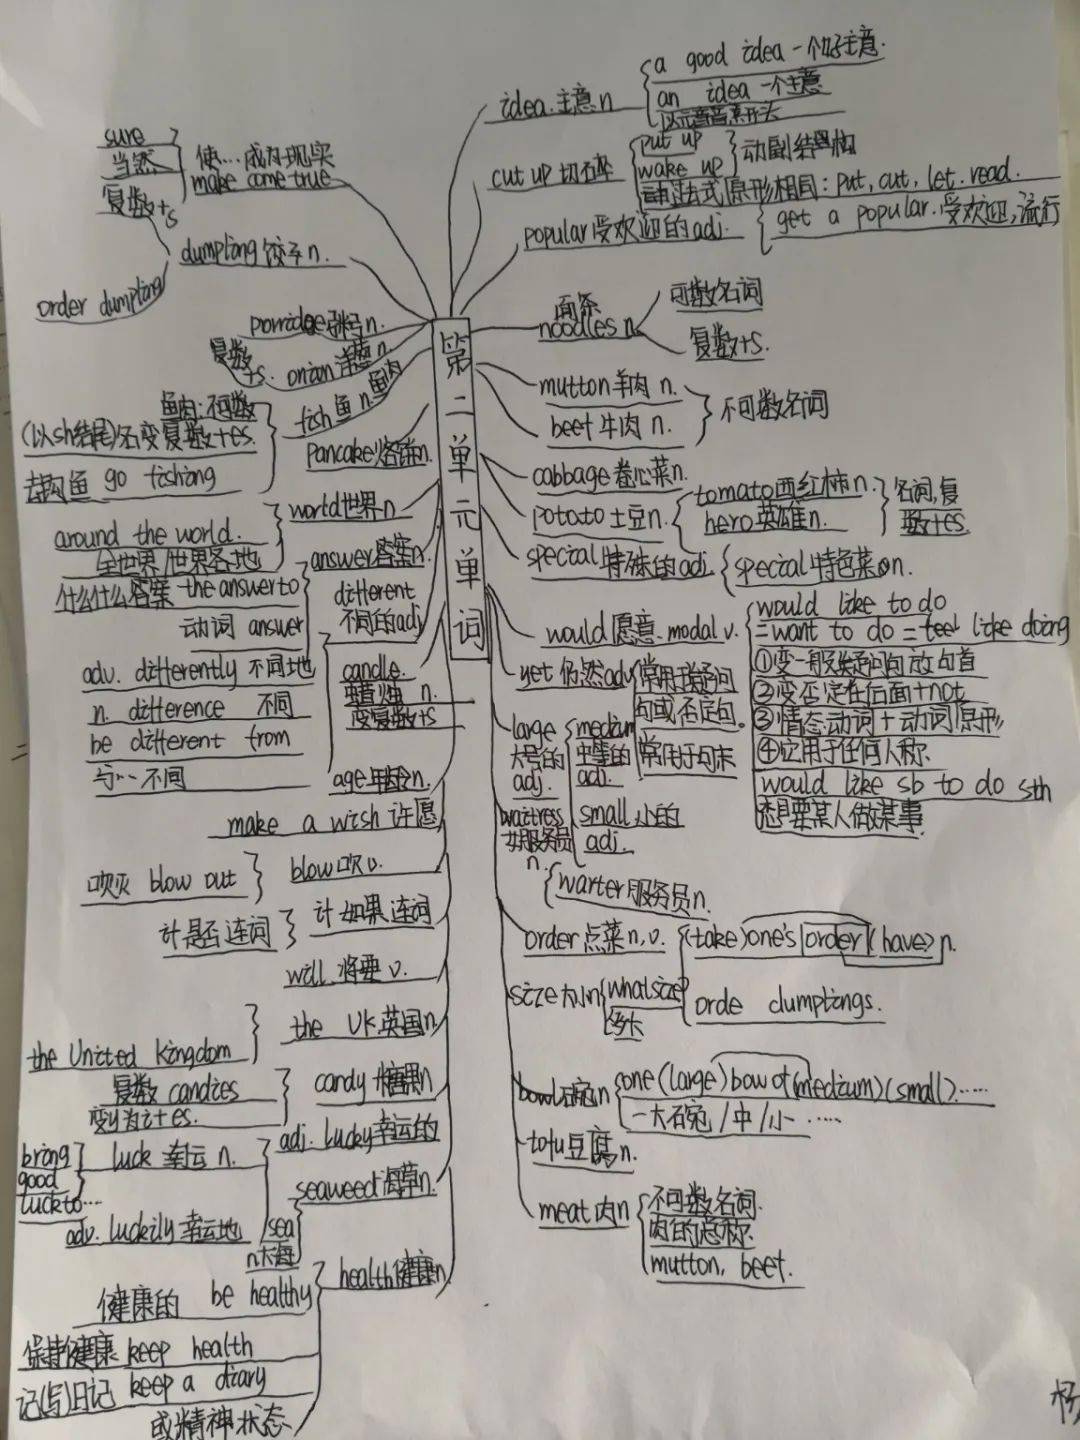 第二单元单词
idea.主意n
a good idea 一个好主意.
an idea 一个主意
以元音音素开头
cut up 切碎
put up
wake up
动副结构
过去式原形相同: put, cut, let. read.
popular受欢迎的adj.
get a popular.受欢迎,流行
面条
noodles n
可数名词
复数+s.
mutton羊肉 n.
beef 牛肉 n.
不可数名词
cabbage卷心菜n.
potato土豆n.
tomato西红柿n.
hero英雄n.
名词,复
数+es
special特殊的adj
special特色菜n.
would愿意.modal v.
would like to do
=want to do = feel like doing
①变一般疑问句放句首
②变否定在后面+not
③情态动词+动词原形
④应用于任何人称
would like sb to do sth
想要某人做某事
yet 仍然adv
常用于疑问
句或否定句.
常用于句末
large
大号的
adj.
medium
中等的
adj.
small小的
adj.
waitress
女服务员
n.
warter服务员n.
order点菜n,v.
(take)one's order (have) n.
orde dumplings.
size大小n
whatsize
多大
bowl碗n
one(large)bow of(medium)(small)......
一大碗/中/小......
tofu豆腐n.
meat肉n
不可数名词.
肉的总称.
mutton, beef.
sure
当然
复数+s
使…成为现实
make come true
dumpling饺子n.
order dumpling
porridge粥n.
onion洋葱n
复数
+s.
fish鱼n.鱼肉
鱼肉:不可数
(以sh结尾)名变复数+es.
去钓鱼 go fishing
pancake烙饼n.
world世界n
around the world.
全世界/世界各地
answer答案n.
什么什么答案 the answer to
动词 answer
different
不同的adj
adv. differently 不同地
n. difference 不同
be different from
与…不同
candle.
蜡烛 n.
变复数+s
age年龄n.
make a wish许愿
blow吹v.
吹灭 blow out
计如果连词
计是否连词
will.将要v.
the UK英国n
the United Kingdom
candy糖果n
复数 candies
变y为i+es.
adj.lucky幸运的
luck 幸运 n.
bring
good
luck to…
adv. luckily幸运地
seaweed海草n.
sea
n大海
health健康n
健康的 be healthy
保持健康 keep health
记(写)日记 keep a diary
或精神状态
杨